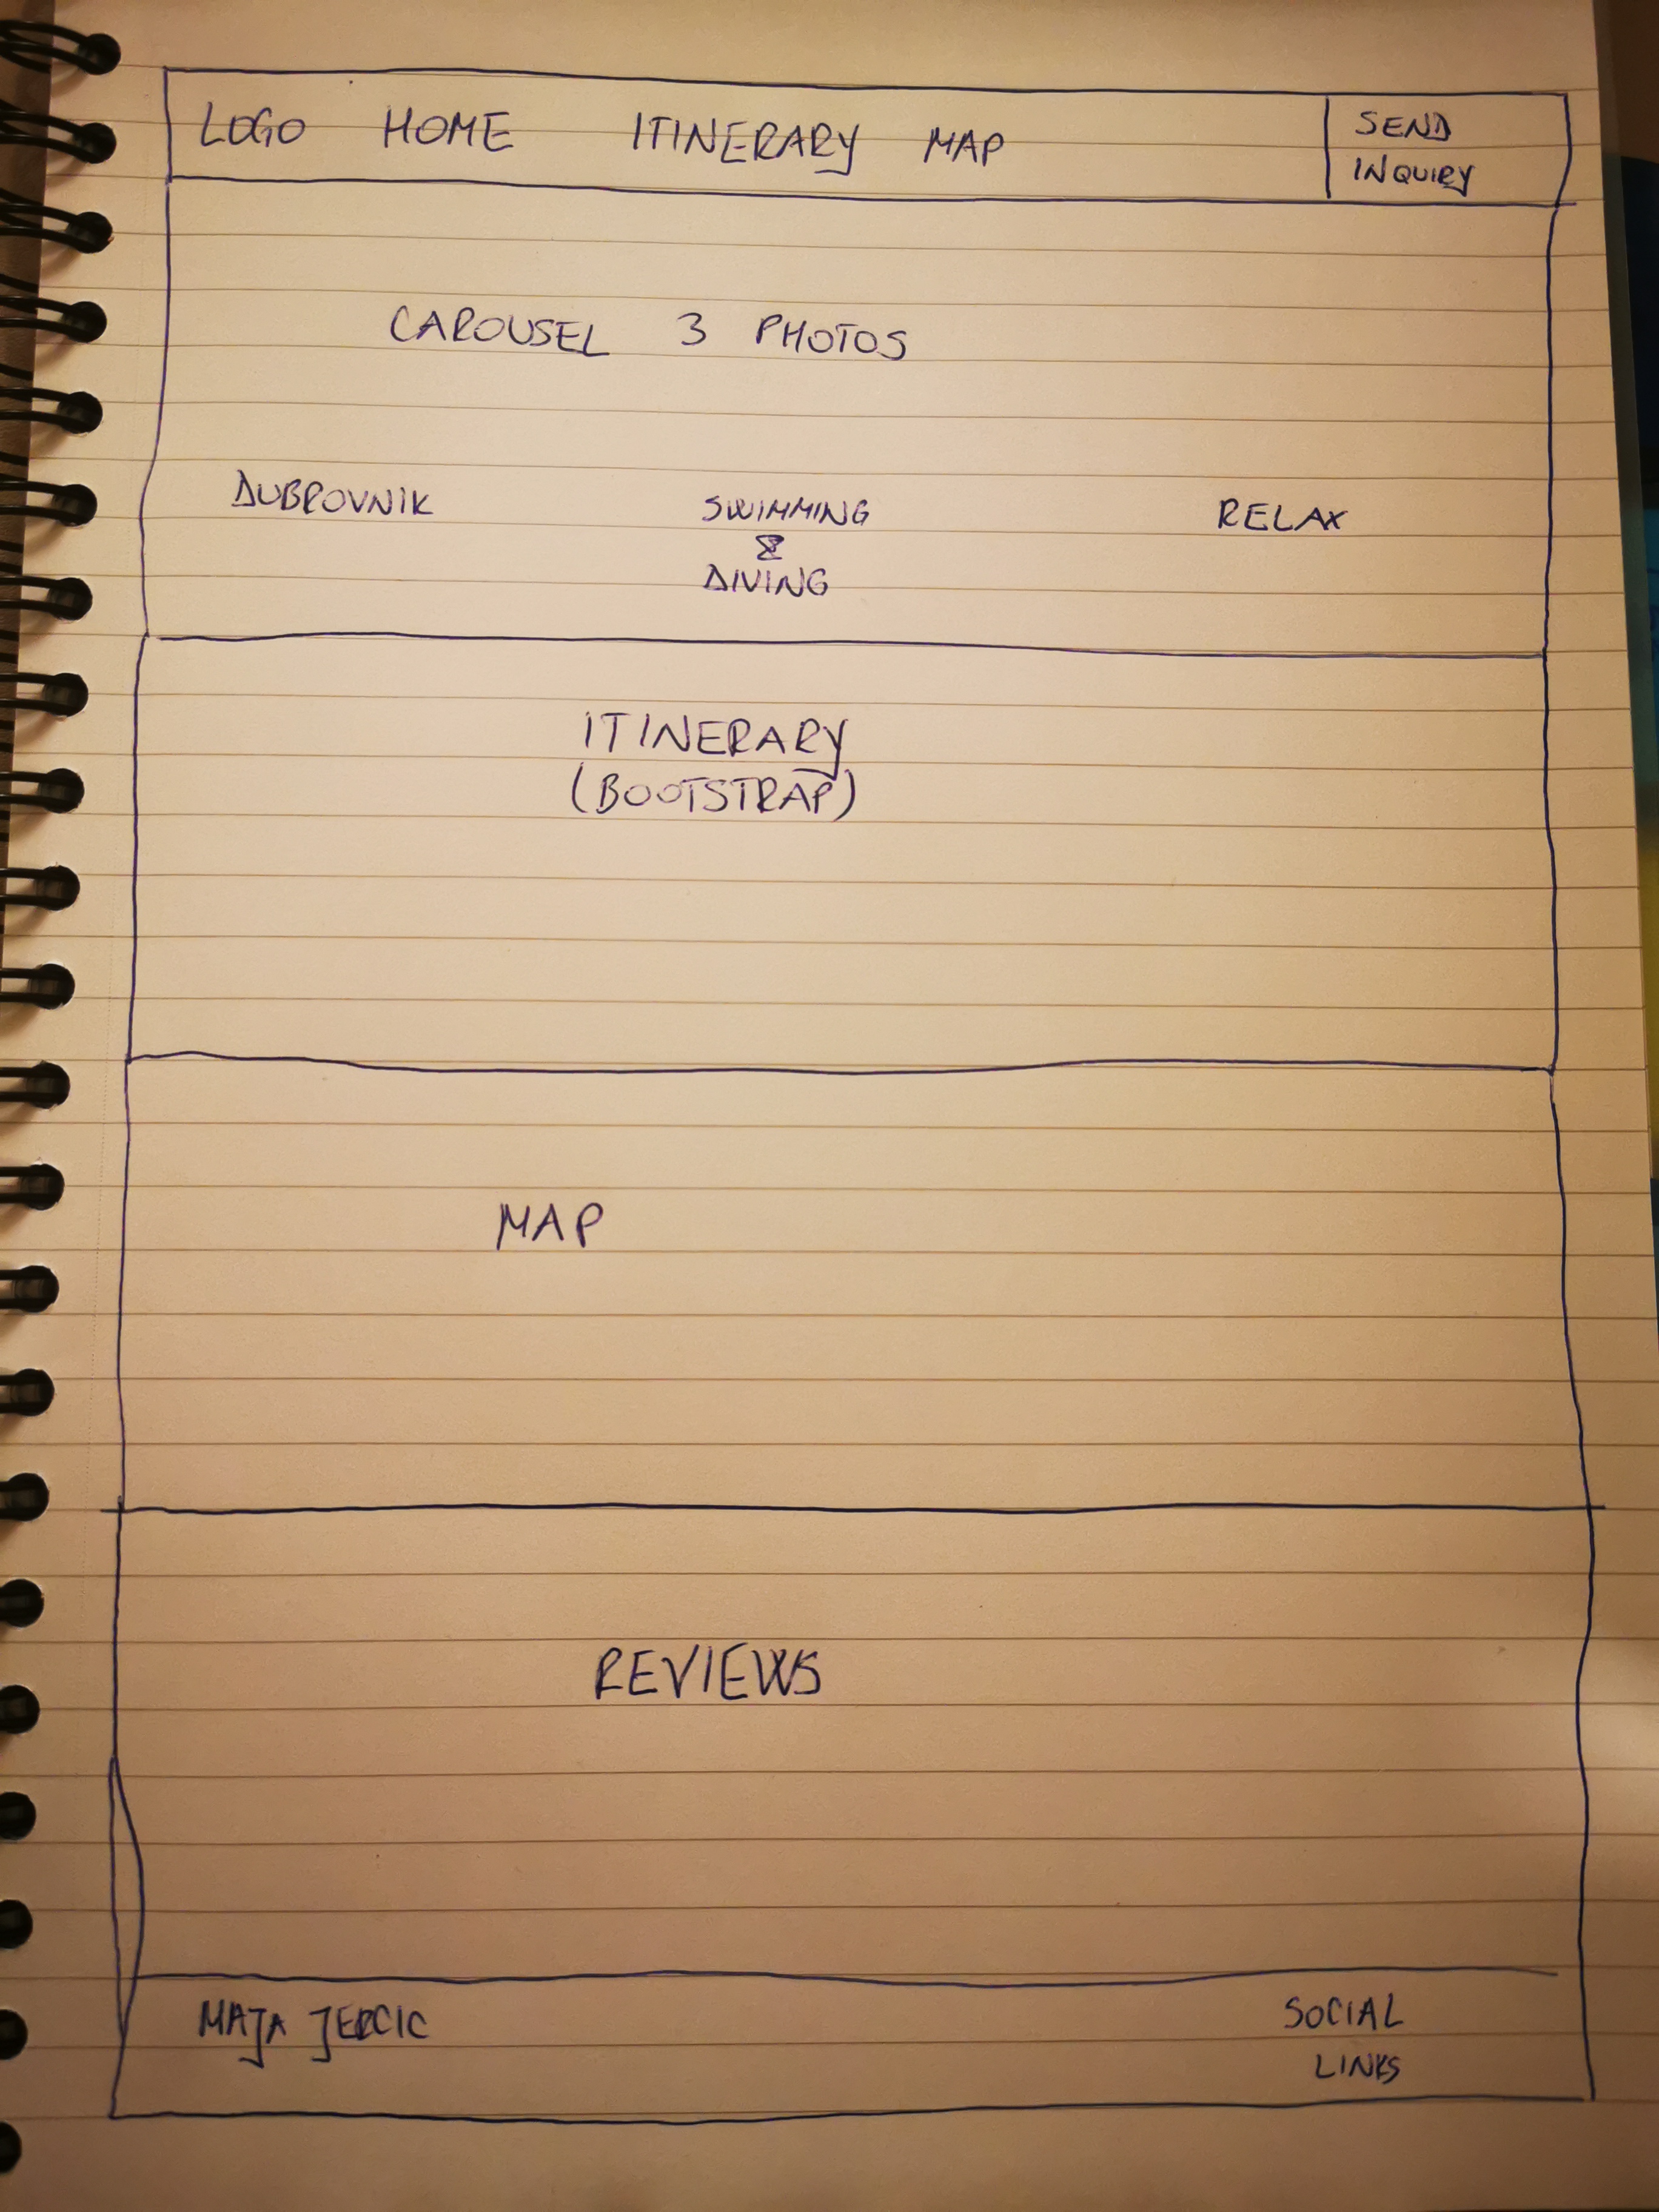 LOGO HOME ITINERARY MAP SEND
INQUIRY
CAROUSEL 3 PHOTOS
DUBROVNIK SWIMMING RELAX
&
DIVING
ITINERARY
(BOOTSTRAP)
MAP
REVIEWS
MAJA JERCIC SOCIAL
LINKS